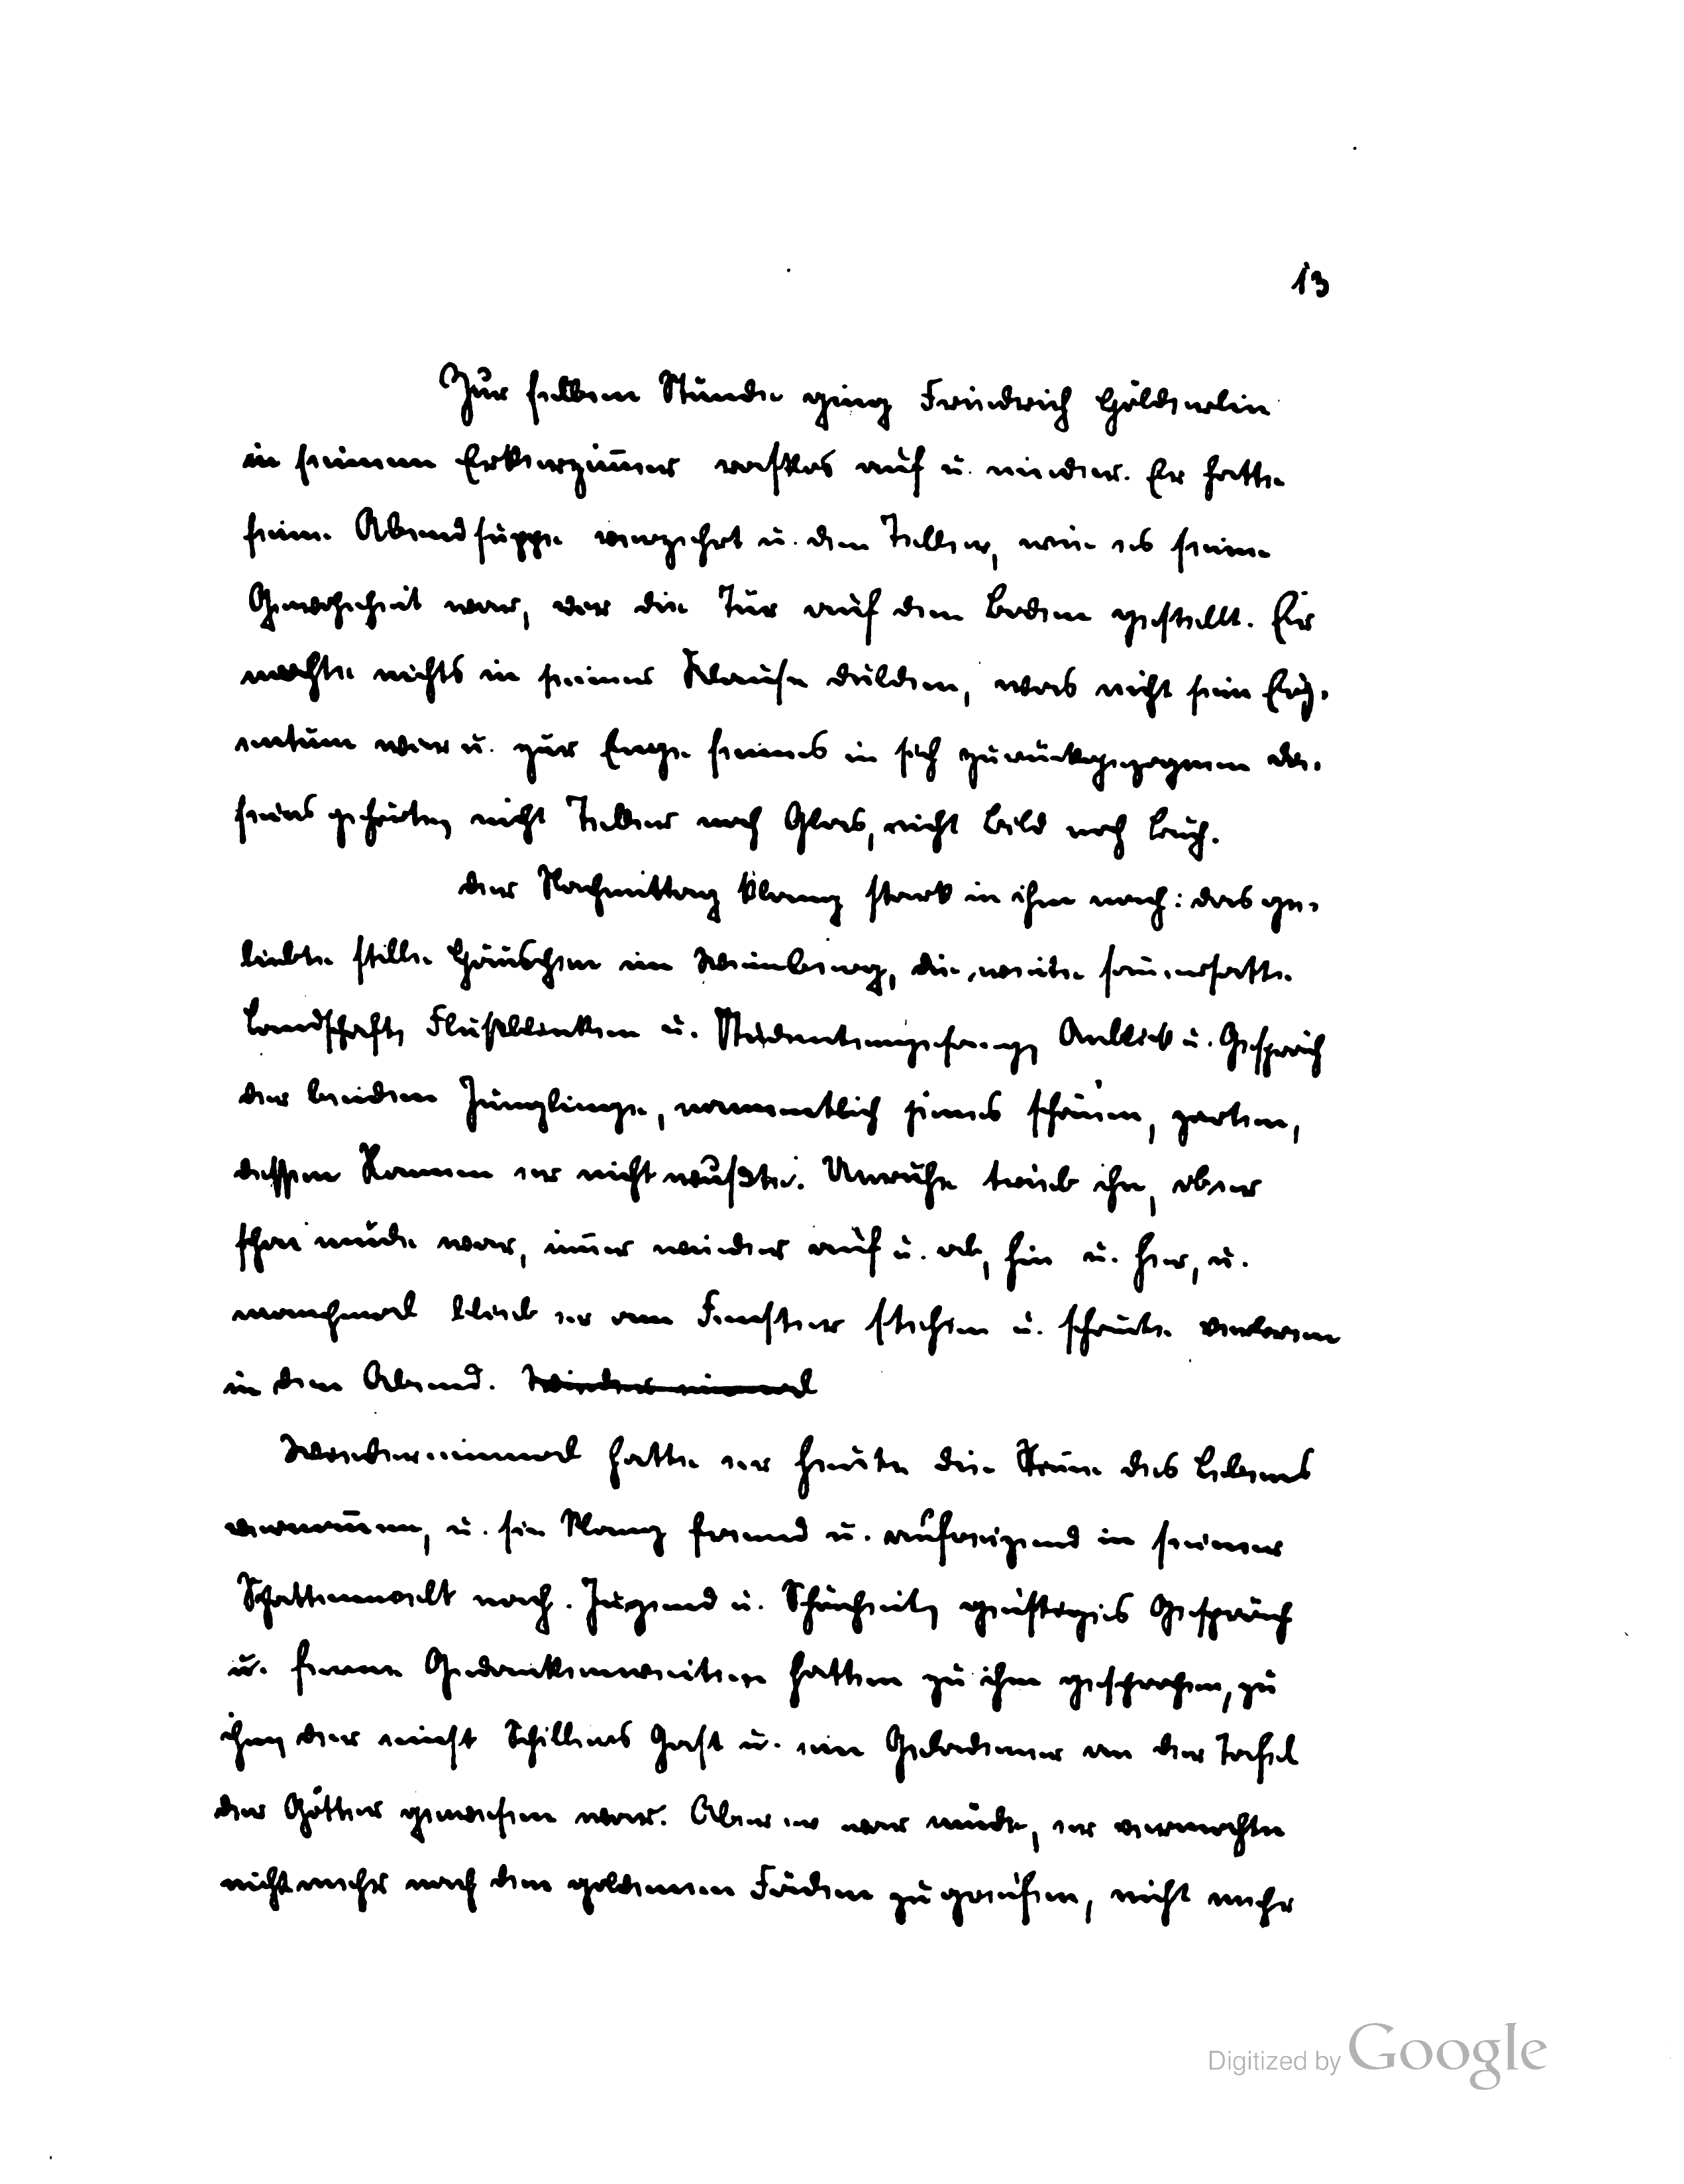 13
Zur selben Stunde ging Friedrich Hölderlin
in seinem Erkerzim̄er rastlos auf u. nieder. Er hatte
seine Abendsuppe verzehrt u. den Teller, wie es seine
Gewohnheit war, vor die Tür auf den Boden gestellt. Er
mochte nichts in seiner Klause dulden, was nicht sein Eig-
entum war u. zur Enge seines in sich zurückgezogenen Da-
seins gehörte, nicht Teller noch Glas, nicht Bild noch Buch.
Der Nachmittag klang stark in ihm nach: das ge-
liebte stille Häuschen im Weinberg, die weite som̄ersatte
Landschaft, Flußblinken u. Studentengesang, Anblick u. Gespräch
der beiden Jünglinge, namentlich jenes schönen, zarten,
dessen Namen er nicht wußte. Unruhe trieb ihn, ob er
schon müde war, im̄er wieder auf u. ab, hin u. her, u.
manchmal blieb er am Fenster stehen u. schaute verloren
in den Abend. Wieder einmal
Wieder einmal hatte er heute die Stim̄e des Lebens
vernom̄en, u. sie klang fremd u. aufreizend in seiner
Schattenwelt nach. Jugend u. Schönheit, geistiges Gespräch
u. ferne Gedankenweiten hatten zu ihm gesprochen, zu
ihm, der einst Schillers Gast u. ein Geladener an der Tafel
der Götter gewesen war. Aber er war müde, er vermochte
nicht mehr nach den goldenen Fäden zu greifen, nicht mehr
Digitized by Google